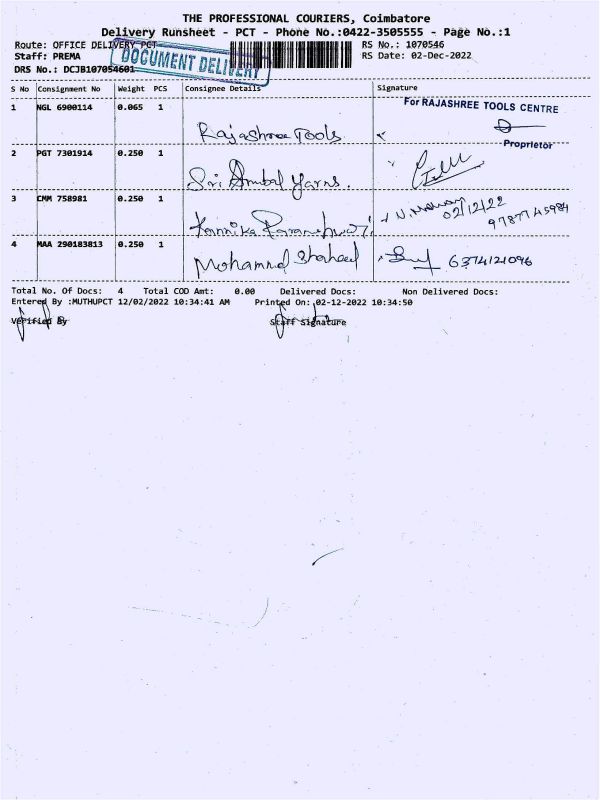 THE PROFESSIONAL COURIERS, Coimbatore
Delivery Runsheet - PCT - Phone No.:0422-3505555 - Page No.:1
Route: OFFICE DELIVERY PCT RS No.: 1070546
Staff: PREMA RS Date: 02-Dec-2022
DRS No.: DCJB107054601
DOCUMENT DELIVERY
S No Consignment No Weight PCS Consignee Details Signature
1 NGL 6900114 0.065 1
For RAJASHREE TOOLS CENTRE
Rajashree Tools
Proprietor
2 PGT 7301914 0.250 1
Sri Ambal Yarns.
3 CMM 758981 0.250 1
02/12/22
Kannika Parameshwari
4 MAA 290183813 0.250 1
Mohammed 6374121096
Total No. Of Docs: 4 Total COD Amt: 0.00 Delivered Docs: Non Delivered Docs:
Entered By :MUTHUPCT 12/02/2022 10:34:41 AM Printed On: 02-12-2022 10:34:50
Verified By Staff Signature